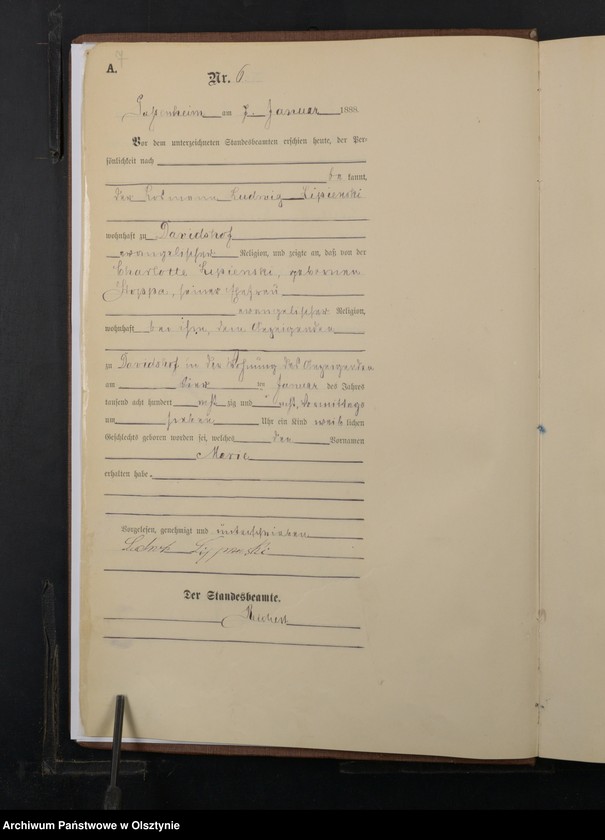 7
A.
Nr. 6
Passenheim am 7. Januar 1888.
Vor dem unterzeichneten Standesbeamten erschien heute, der Per-
sönlichkeit nach
be kannt,
der Losmann Ludwig Lipienski
wohnhaft zu Davidshof
evangelischer Religion, und zeigte an, daß von der
Charlotte Lipienski, gebornen
Stoppa, seiner Ehefrau
evangelischer Religion,
wohnhaft bei ihm, dem Anzeigenden
zu Davidshof in der Wohnung des Anzeigenden
am vier ten Januar des Jahres
tausend acht hundert acht zig und acht, Vormittags
um sieben Uhr ein Kind weib lichen
Geschlechts geboren worden sei, welches den Vornamen
Marie
erhalten habe.
Vorgelesen, genehmigt und unterschrieben
Der Standesbeamte.
Archiwum Państwowe w Olsztynie